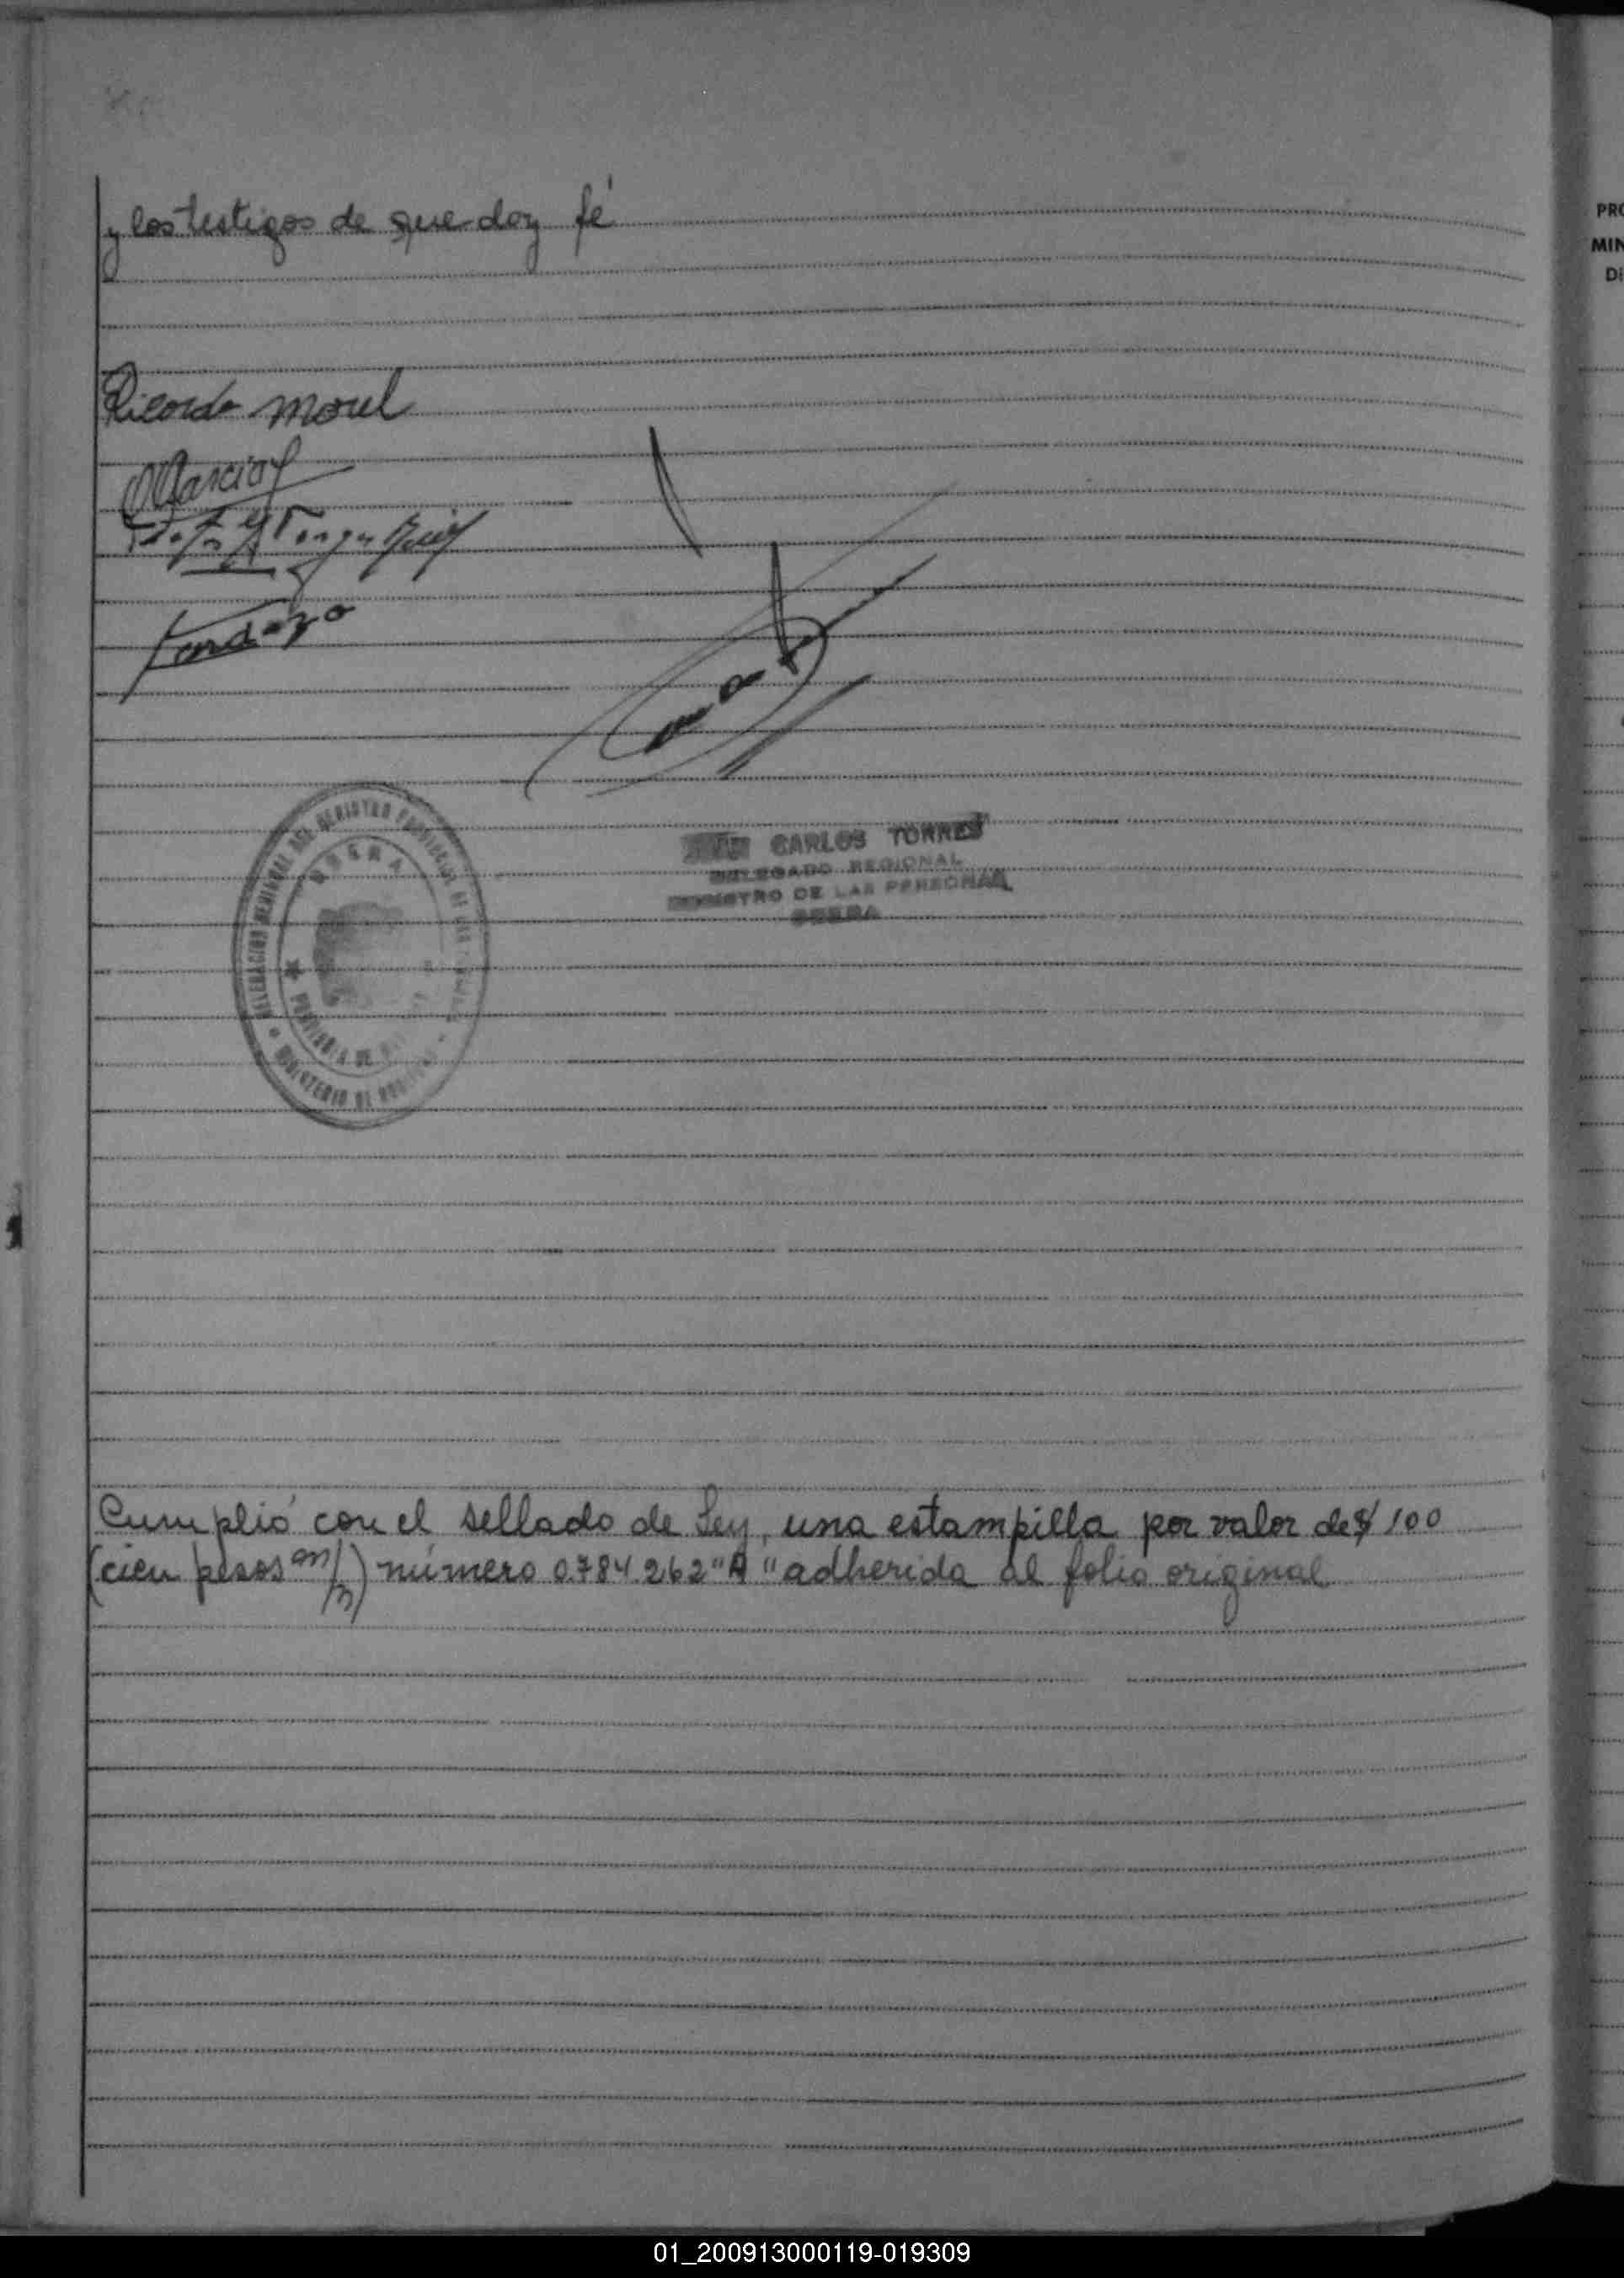 y los testigos de que doy fé
Ricardo Morel
Cardozo
CARLOS TORRES
DELEGADO REGIONAL
REGISTRO DE LAS PERSONAS
OBERA
DELEGACION REGIONAL DEL REGISTRO PROVINCIAL DE LAS
OBERA
PROVINCIA DE
MINISTERIO DE
Cumplió con el sellado de Ley, una estampilla por valor de $ 100
(cien pesos m/n) número 0.784.262 "A" adherida al folio original
PRO
MIN
Di
01_200913000119-019309